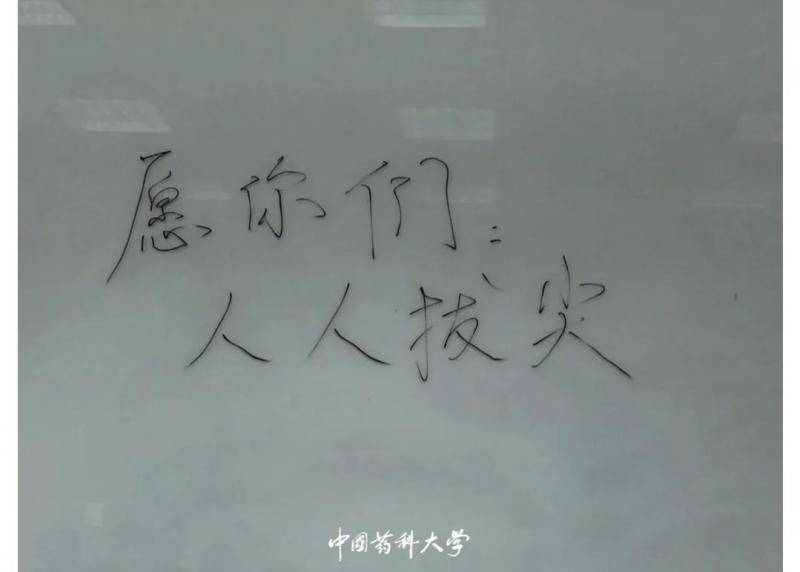 愿你们:
人人拔尖
中国药科大学